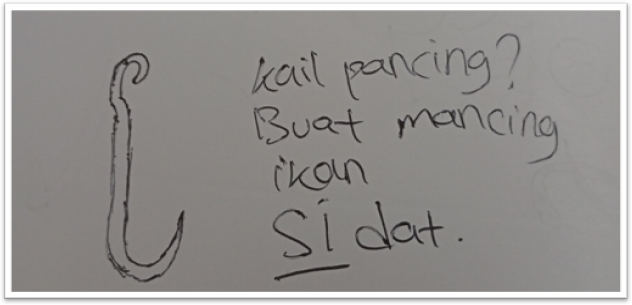 kail pancing?
Buat mancing
ikan
SIdat.